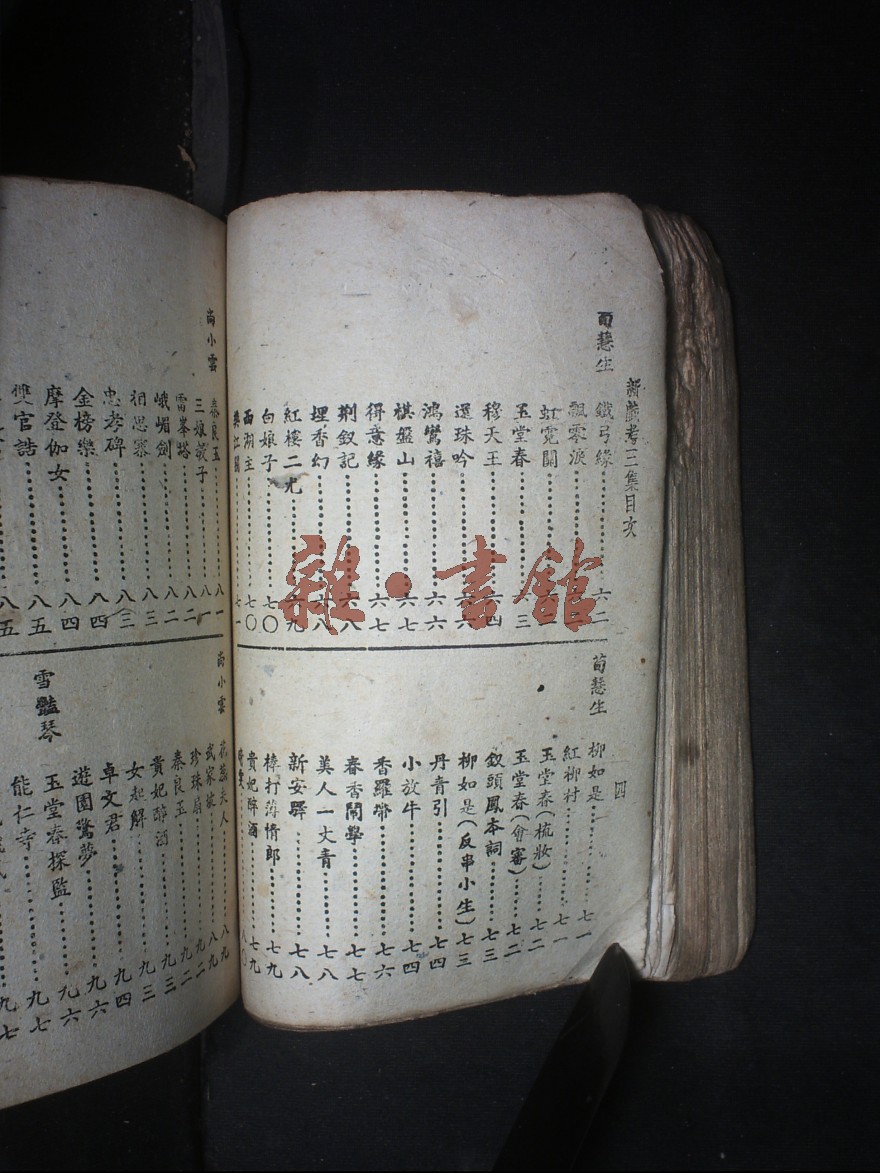 新戲考三集目次
四
荀慧生
鐵弓緣 六二
飄零淚
虹霓關
玉堂春 六三
穆天王 六四
還珠吟 六六
鴻鸞禧 六六
棋盤山 六七
得意緣 六七
荆釵記 六八
埋香幻 六八
紅樓二尤 六九
白娘子 七〇
西湖主 七〇
七一
荀慧生
柳如是 七一
紅柳村 七一
玉堂春(梳妝) 七二
玉堂春(會審) 七二
釵頭鳳本詞 七三
柳如是(反串小生) 七三
丹青引 七四
小放牛 七四
香羅帶 七六
春香鬧學 七七
美人一丈青 七八
新安驛 七八
棒打薄情郎 七九
貴妃醉酒 七九
八〇
尚小雲
秦良玉 八一
三娘教子 八一
雷峯塔 八二
峨嵋劍 八二
相思寨 八三
忠孝碑 八三
金榜樂 八四
摩登伽女 八四
雙官誥 八五
八五
尚小雲
花蕊夫人 八九
武家坡 八九
珍珠扇 九二
秦良玉 九二
貴妃醉酒 九三
女起解 九三
卓文君 九四
遊園驚夢 九六
玉堂春探監 九六
雪豔琴
能仁寺 九七
九七
雜·書館